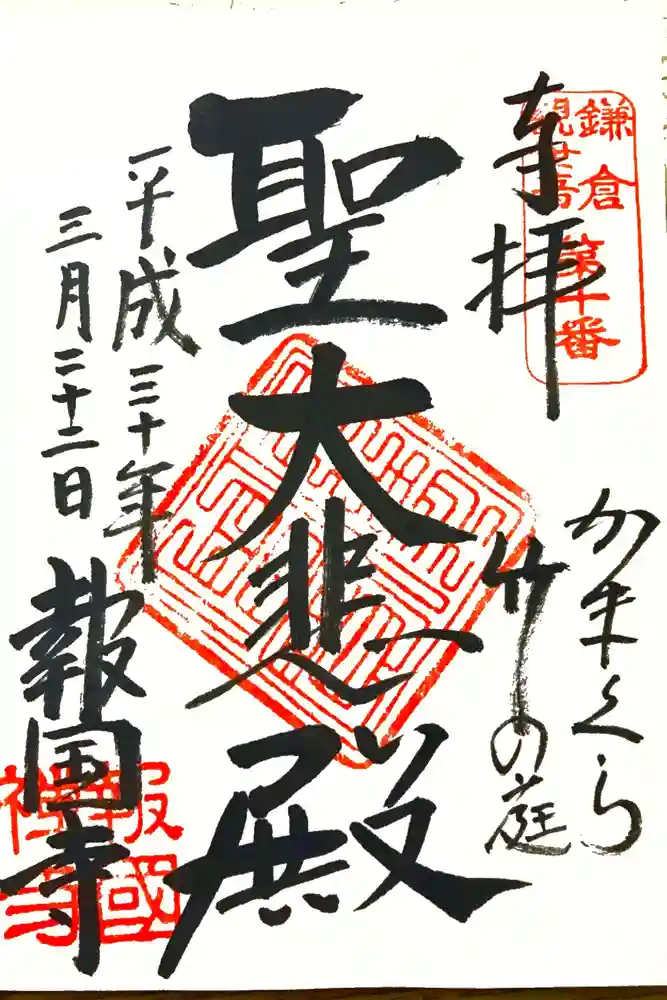 奉拝
鎌倉
観世音
第十番
かまくら
竹の庭
聖大悲殿
平成三十年
三月二十二日
報国寺
報國
禅寺